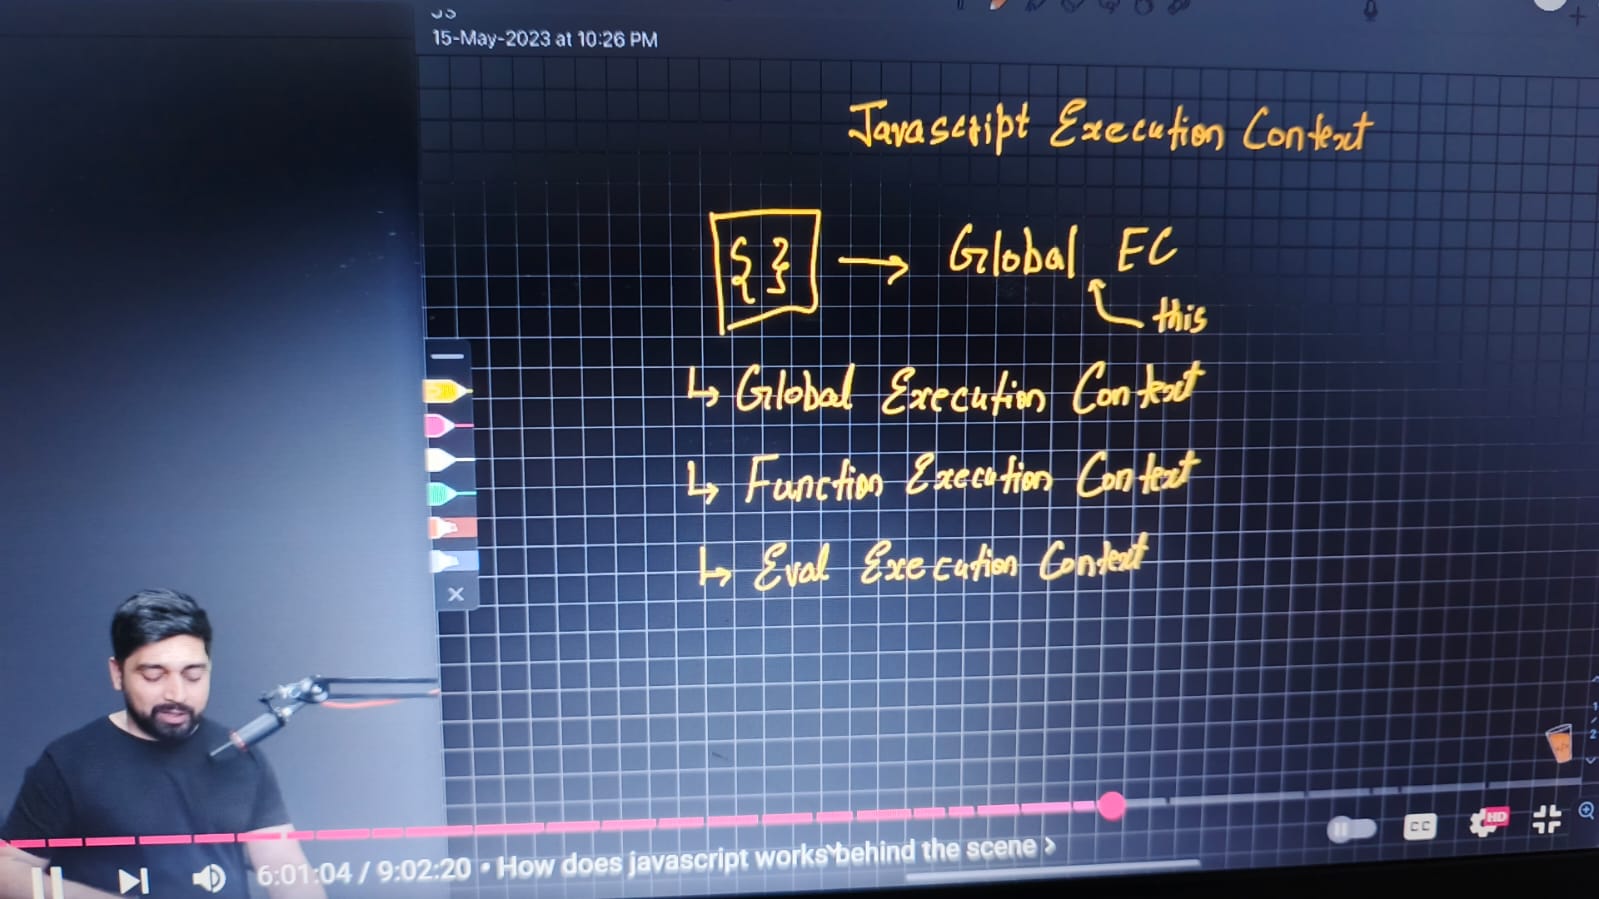 JS
15-May-2023 at 10:26 PM
Javascript Execution Context
{ } → Global EC
this
↳ Global Execution Context
↳ Function Execution Context
↳ Eval Execution Context
1
2
CC
HD
6:01:04 / 9:02:20 • How does javascript works behind the scene >